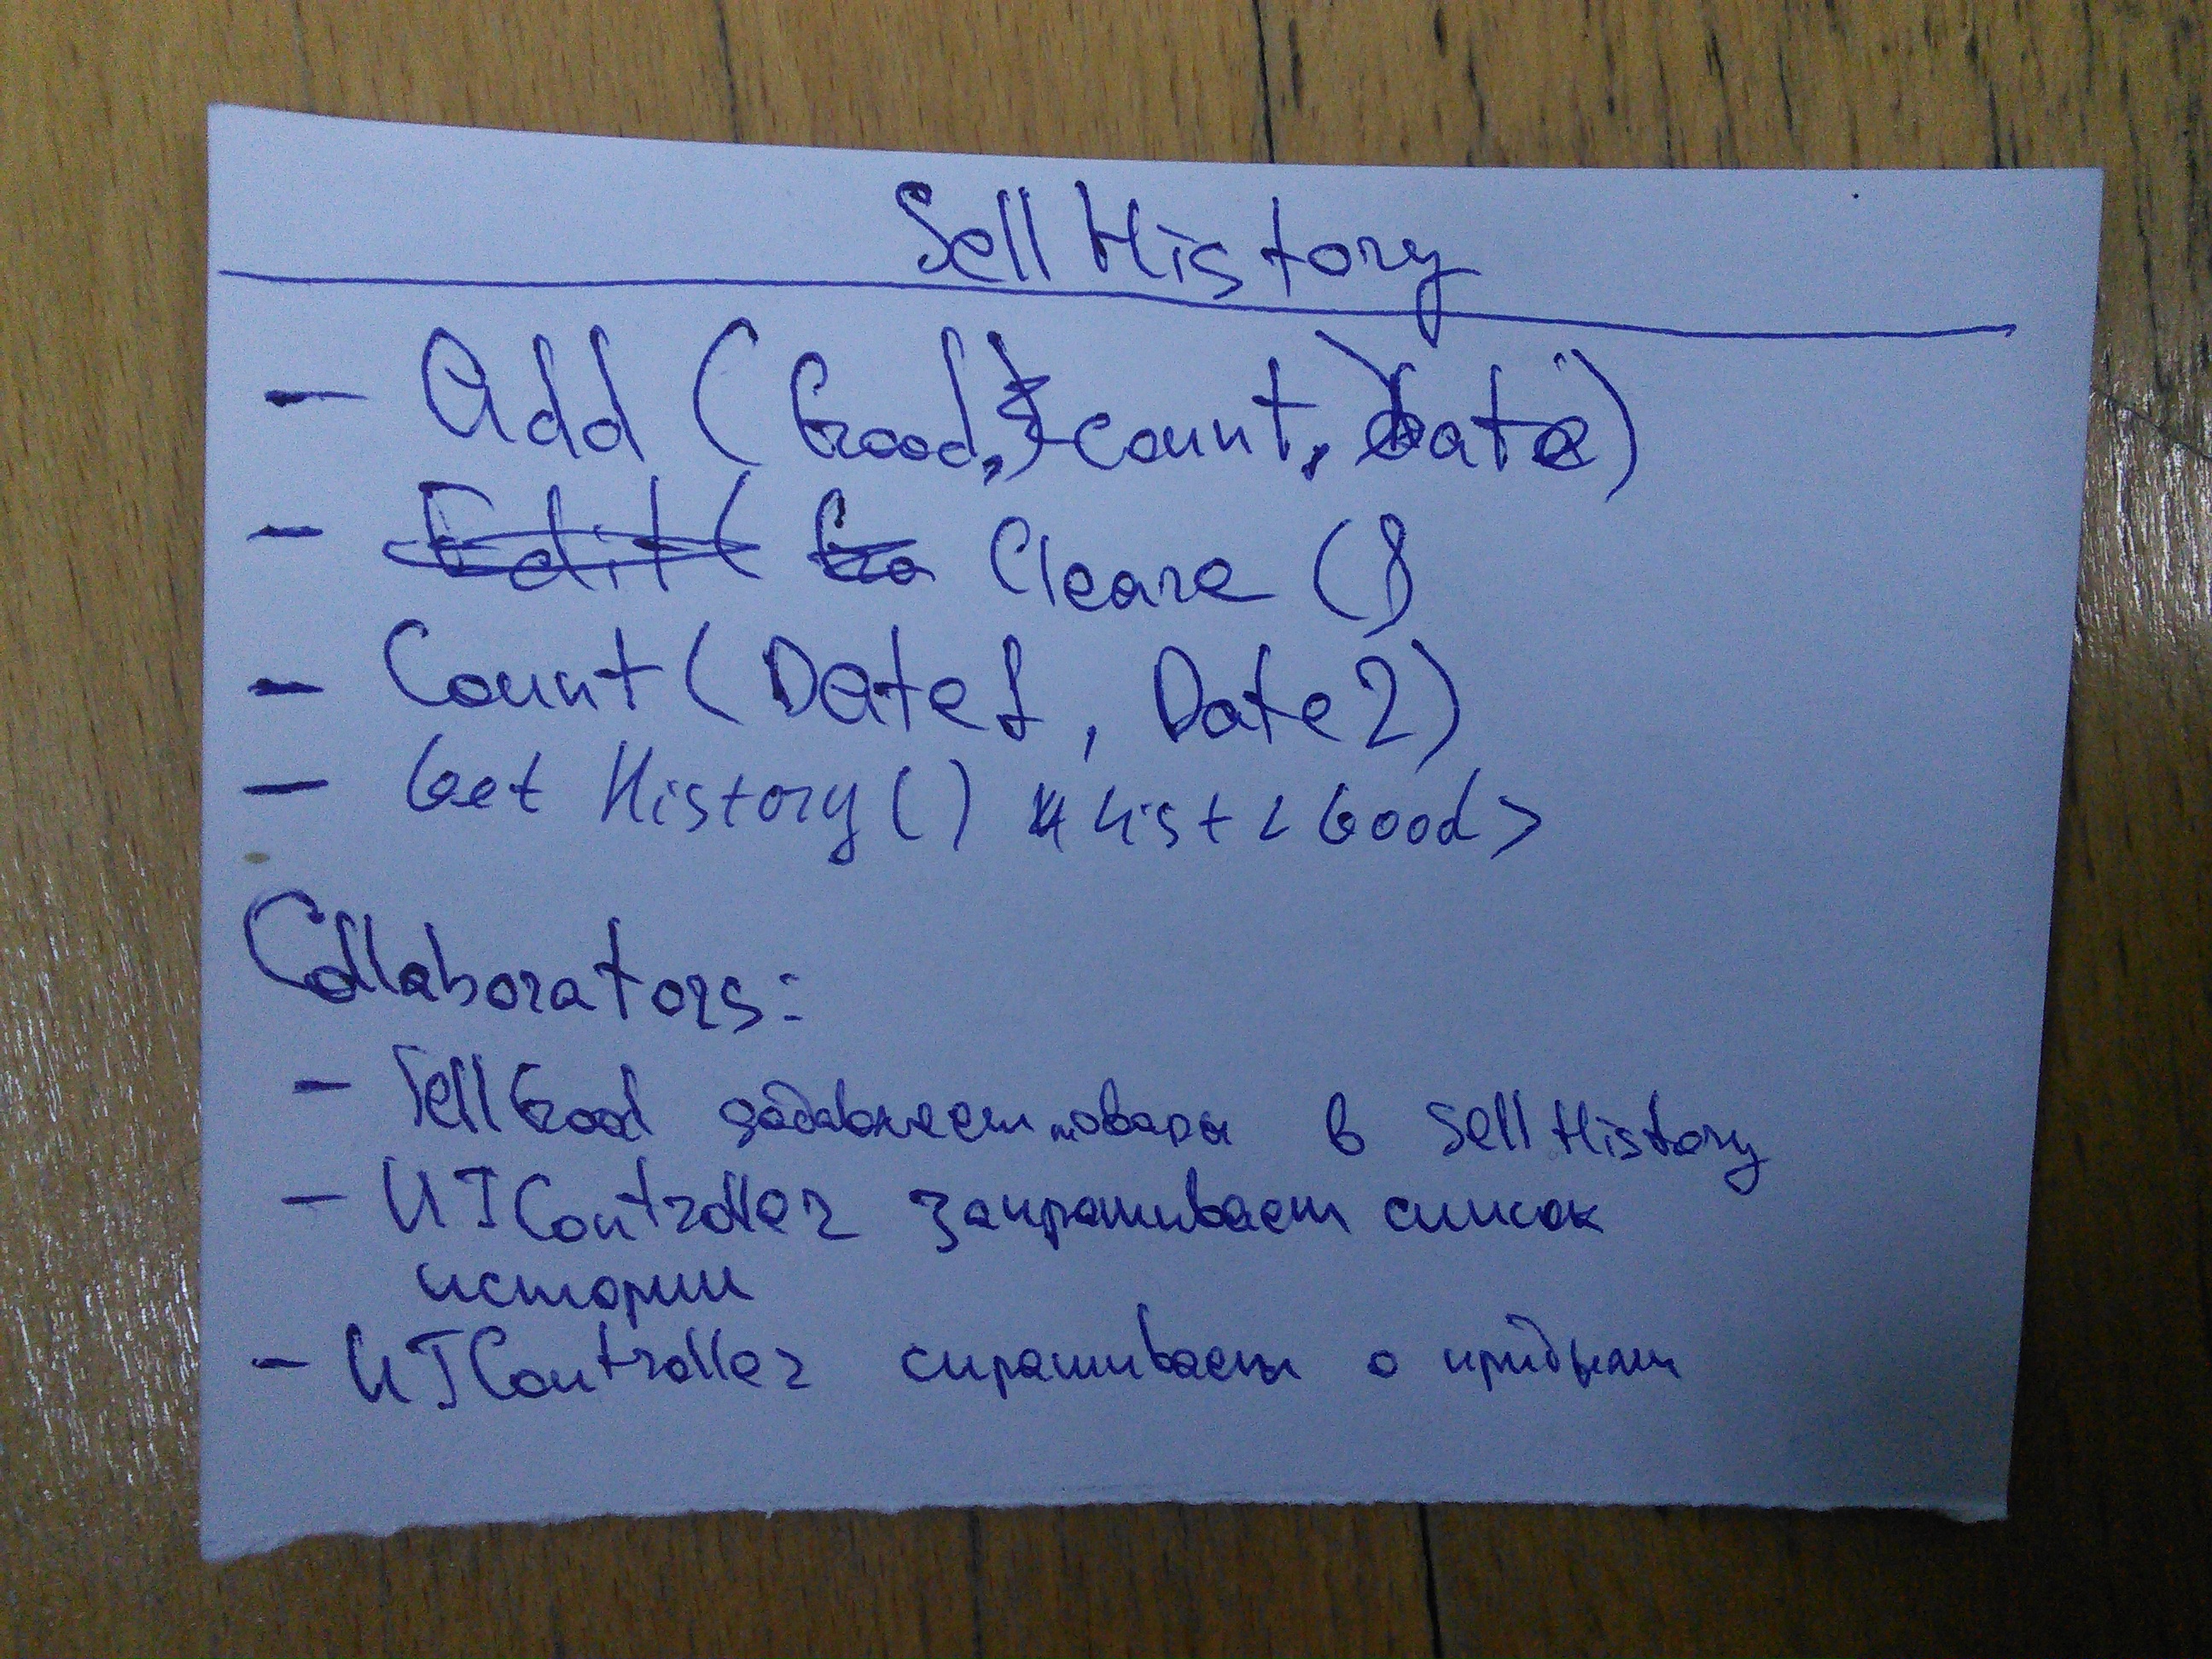 Sell History
- Add (Good, count, Date)
- Cleare ()
- Count (Date1, Date2)
- Get History() List<Good>
Collaborators:
- SellGood добавляет товары в SellHistory
- UIController запрашивает список
истории
- UIController спрашивает о прибыли